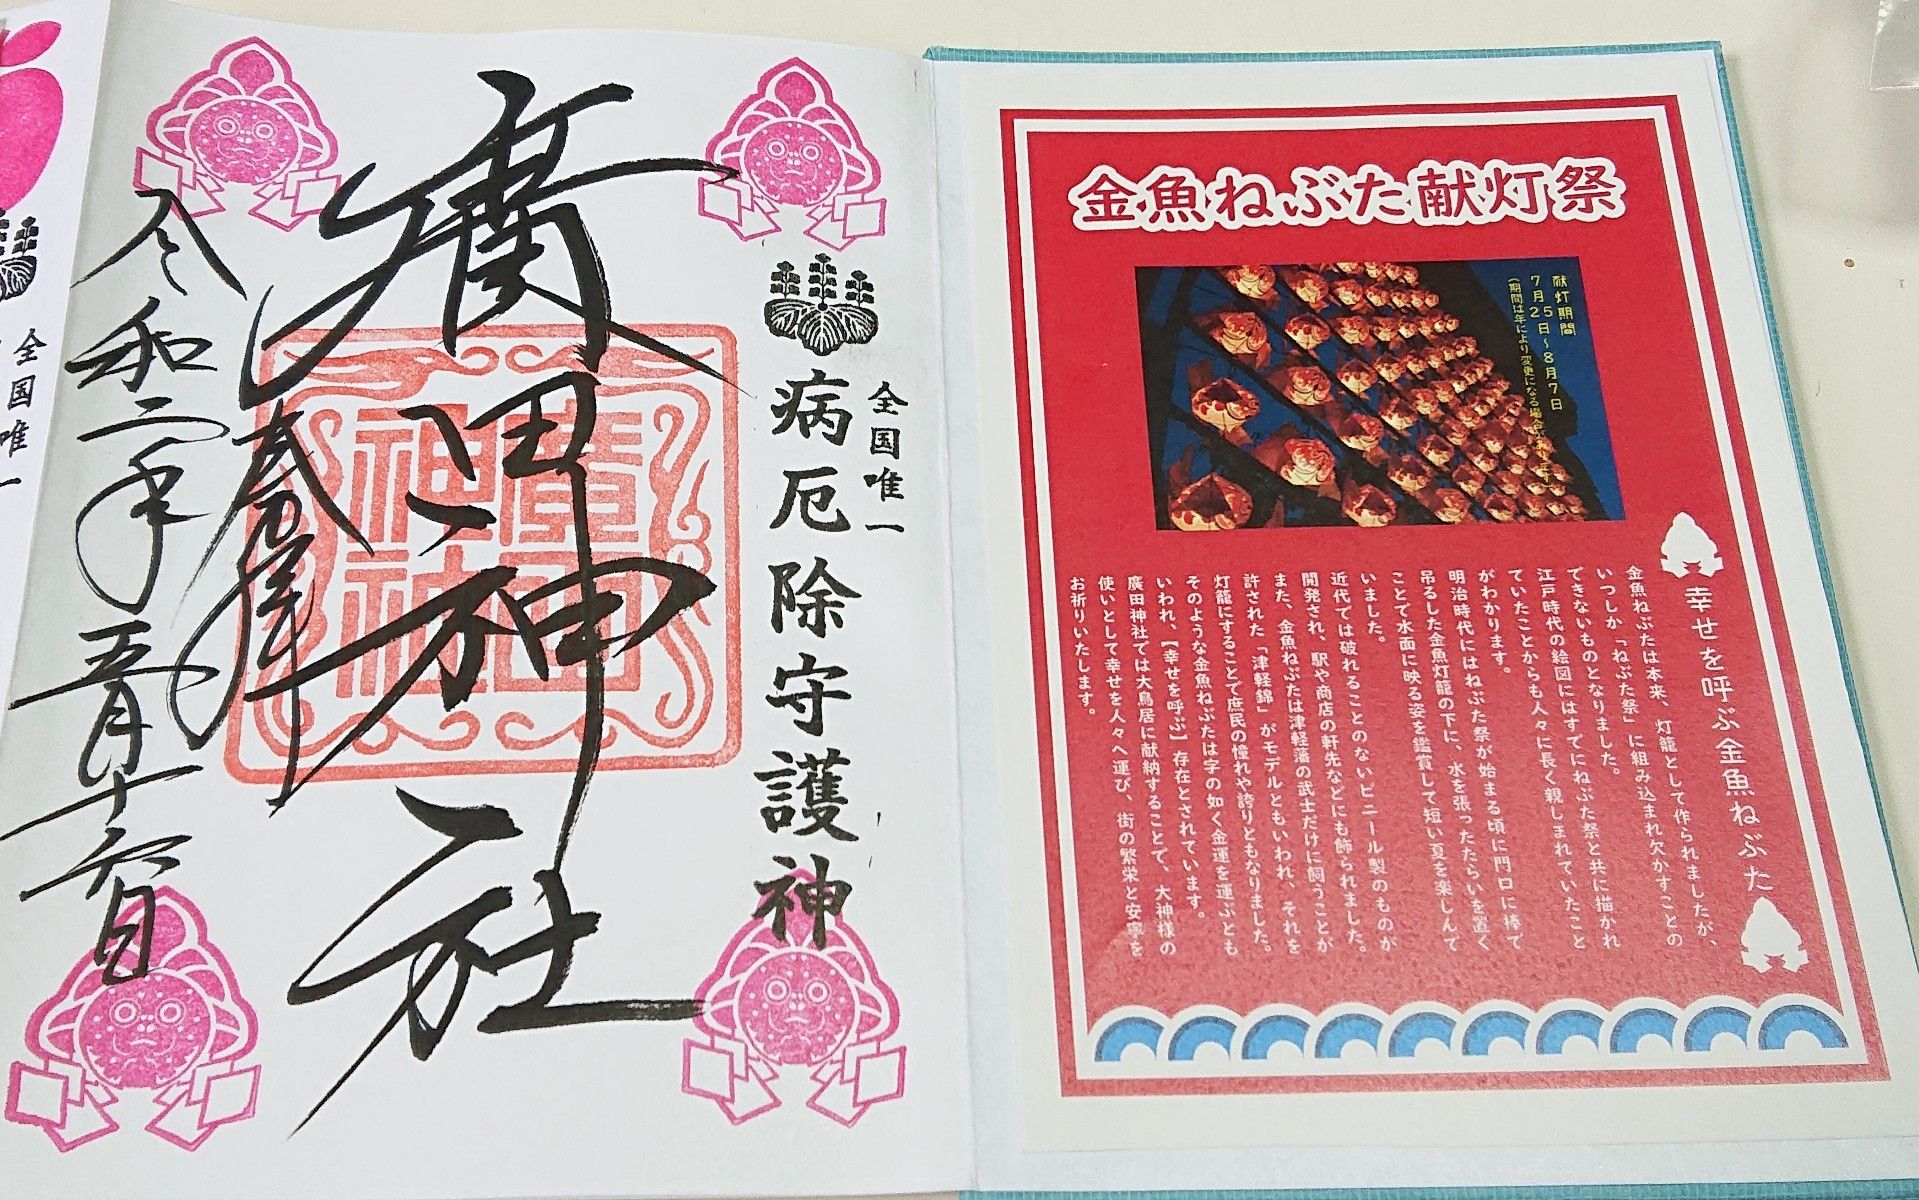 金魚ねぶた献灯祭
献灯期間
7月25日~8月7日
幸せを呼ぶ金魚ねぶた
金魚ねぶたは本来、灯籠として作られましたが、
いつしか「ねぶた祭」に組み込まれ欠かすことの
できないものとなりました。
江戸時代の絵図にはすでにねぶた祭と共に描かれ
ていたことからも人々に長く親しまれていたこと
がわかります。
明治時代にはねぶた祭が始まる頃に門口に棒で
吊るした金魚灯籠の下に、水を張ったたらいを置く
ことで水面に映る姿を鑑賞して短い夏を楽しんで
いました。
近代では破れることのないビニール製のものが
開発され、駅や商店の軒先などにも飾られました。
また、金魚ねぶたは津軽藩の武士だけに飼うことが
許された「津軽錦」がモデルともいわれ、それを
灯籠にすることで庶民の憧れや誇りともなりました。
そのような金魚ねぶたは字の如く金運を運ぶとも
いわれ、【幸せを呼ぶ】存在とされています。
廣田神社では大鳥居に献納することで、大神様の
使いとして幸せを人々へ運び、街の繁栄と安寧を
お祈りいたします。
全国唯一
病厄除守護神
廣田神社
廣田神社
奉拝
令和二年五月十六日
全国唯一